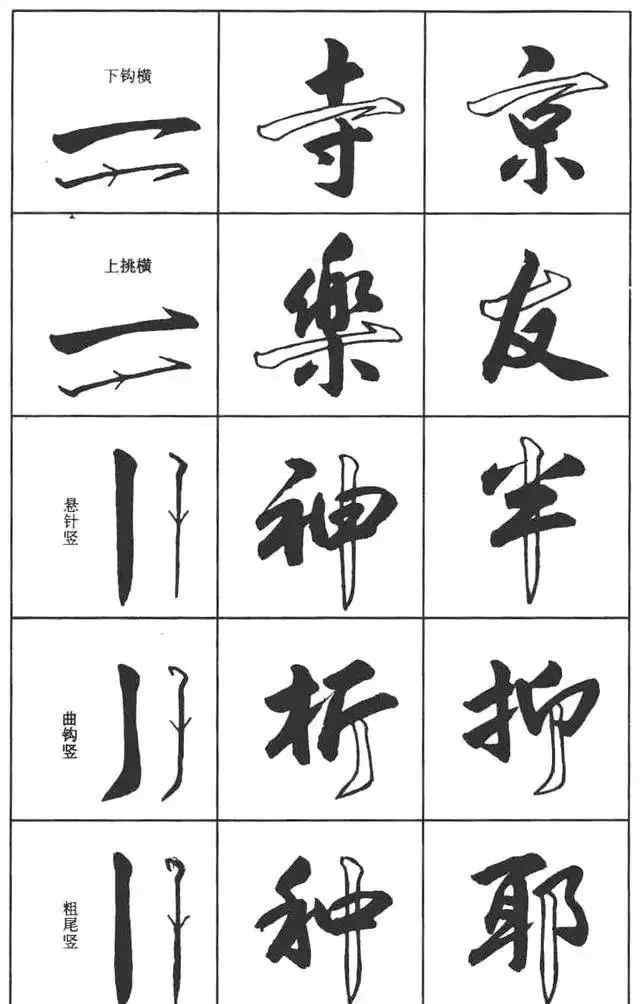 下钩横
寺
京
上挑横
樂
友
悬针竖
神
半
曲钩竖
析
抑
粗尾竖
种
耶